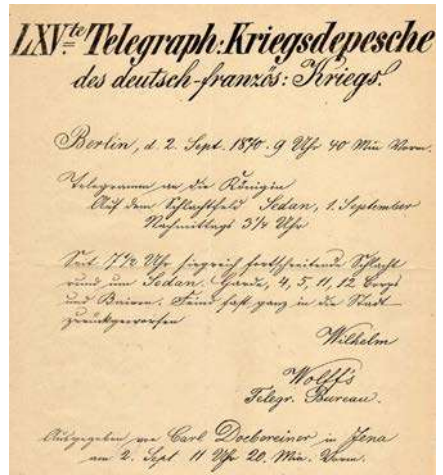 LXV.te Telegraph: Kriegsdepesche
des deutsch-französ: Kriegs.
Berlin, d. 2. Sept. 1870. 9 Uhr 40 Min Vorm.
Telegramm an die Königin
Auf dem Schlachtfeld Sedan, 1. September
Nachmittags 3¼ Uhr
Seit 7½ Uhr siegreich fortschreitende Schlacht
rund um Sedan. Garde, 4, 5, 11, 12 Corps
und Baiern. Feind fast ganz in die Stadt
zurückgeworfen
Wilhelm
Wolff's
Telegr. Bureau.
Ausgegeben von Carl Doebereiner in Jena
am 2. Sept 11 Uhr 20. Min. Vorm.